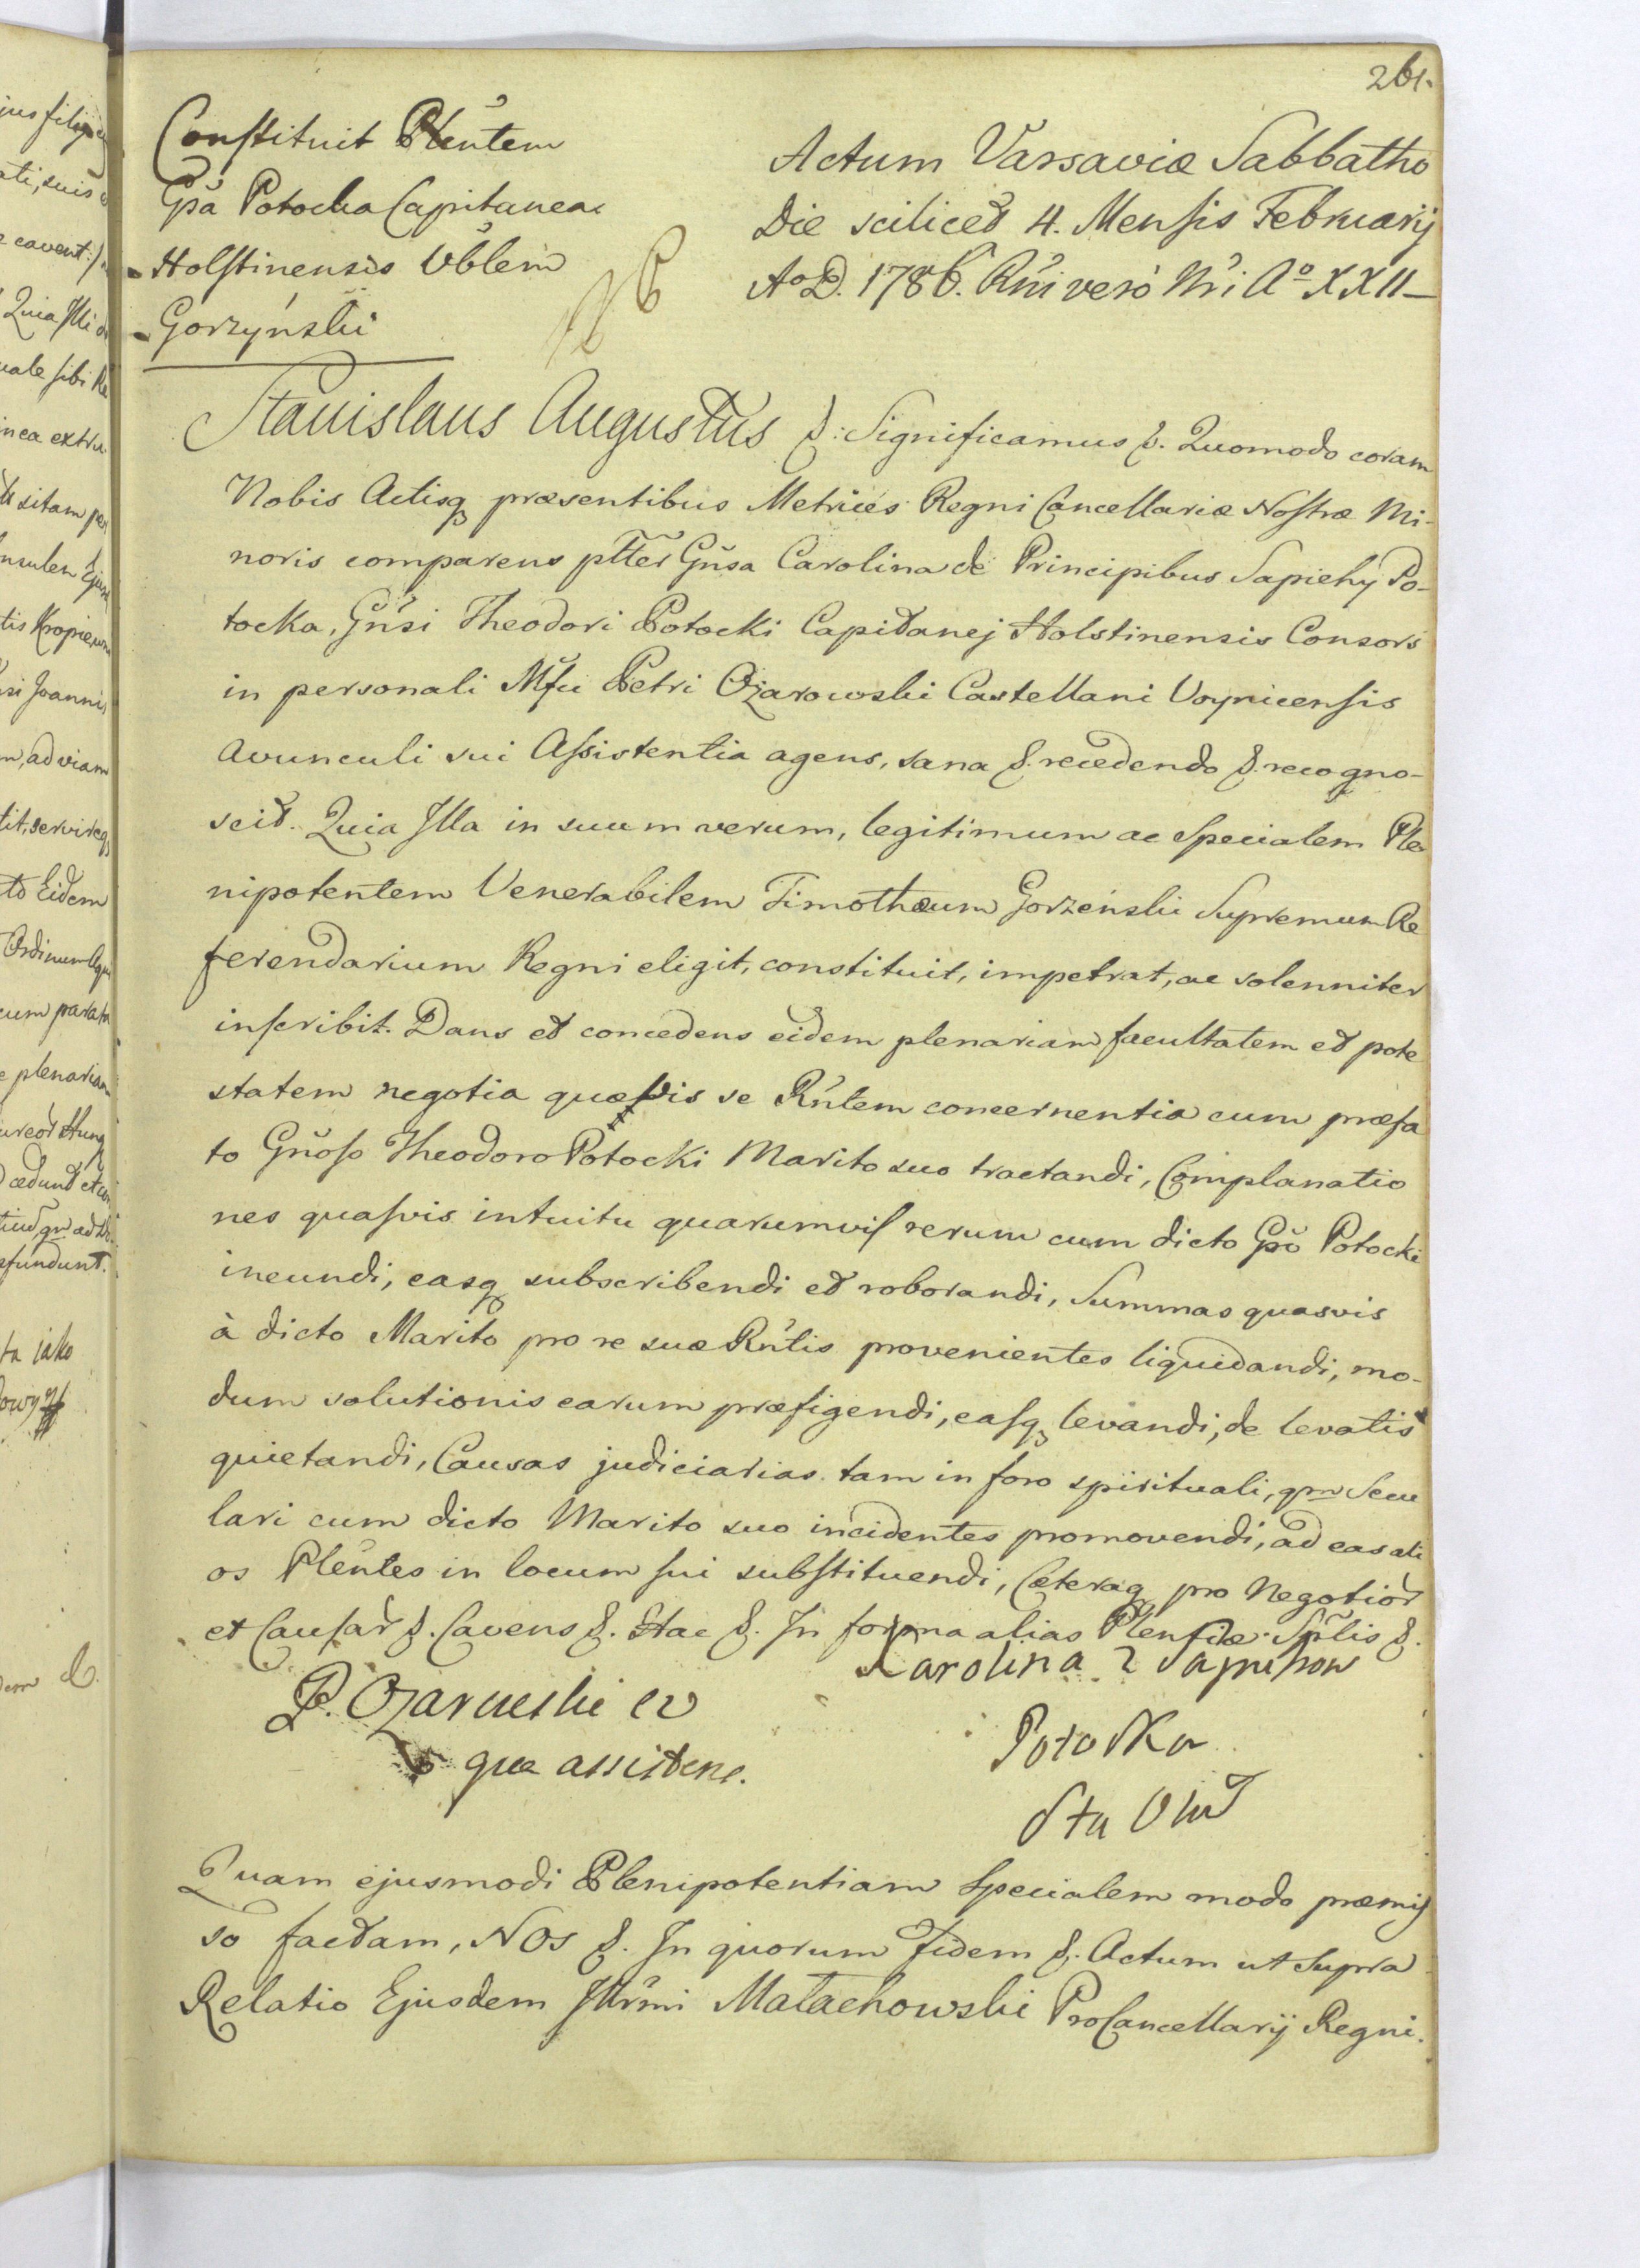 261.
Constituit Plentem
Gsa Potocka Capitanea
Holstinensis Vblem
Gorzyński
Actum Varsaviæ Sabbatho
Die scilicet 4. Mensis Februarij
Ao D. 1786. Rni verò Nri Ao XXII
Stanislaus Augustus &: Significamus &. Quomodo coram
Nobis Actisq præsentibus Metrices Regni Cancellariæ Nostræ Mi-
noris comparens ptter Gnsa Carolina de Principibus Sapiehy Po-
tocka, Gnsi Theodori Potocki Capitanej Holstinensis Consors
in personali Mfci Petri Ożarowski Castellani Voynicensis
Avunculi sui Assistentia agens, sana &. recedendo &. recogno-
scit. Quia Illa in suum verum, legitimum ac Specialem Ple
nipotentem Venerabilem Timothæum Gorzeński Supremum Re
ferendarium Regni eligit, constituit, impetrat, ac solenniter
inscribit. Dans et concedens eidem plenariam facultatem et pote
statem negotia quævis se Rntem concernentia cum præfa
to Gnoso Theodoro Potocki Marito suo tractandi, Complanatio
nes quasvis intuitu quarumvis rerum cum dicto Gso Potocki
ineundi, easq subscribendi et roborandi, Summas quasvis
à dicto Marito pro re suæ Rntis provenientes liquidandi, mo-
dum solutionis earum præfigendi, easq levandi, de levatis
quietandi, Causas judiciarias tam in foro spirituali, qm Secu
lari cum dicto Marito suo incidentes promovendi, ad eas ali
os Plentes in locum sui substituendi, Cæteraq pro Negotior
et Causar &. Cavens &. Hac &. In forma alias Plenfiæ Splis &.
Karolina z Sapiehow
P. Ożarowski CW
Potocka
qua assistens.
Quam ejusmodi Plenipotentiam Specialem modo præmis
so factam, NOs &. In quorum Fidem &. Actum ut Supra
Relatio Ejusdem Illrmi Małachowski ProCancellarij Regni.